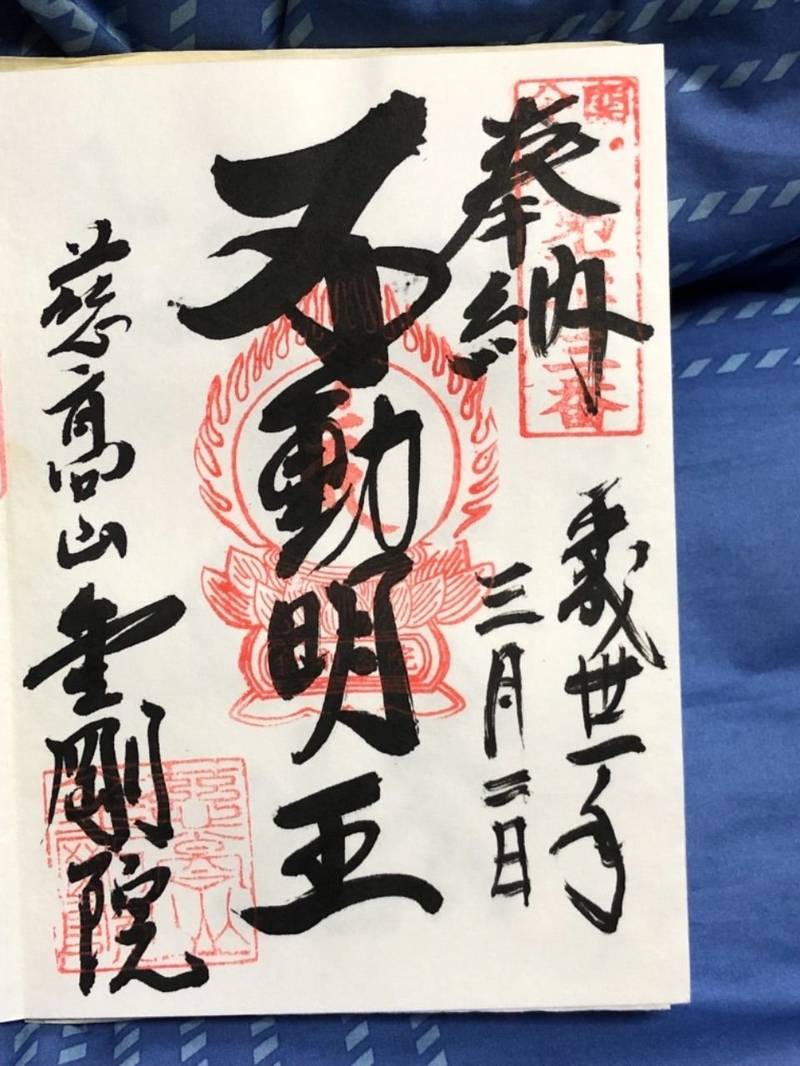 奉納
平成世一年
三月二日
不動明王
慈高山金剛院